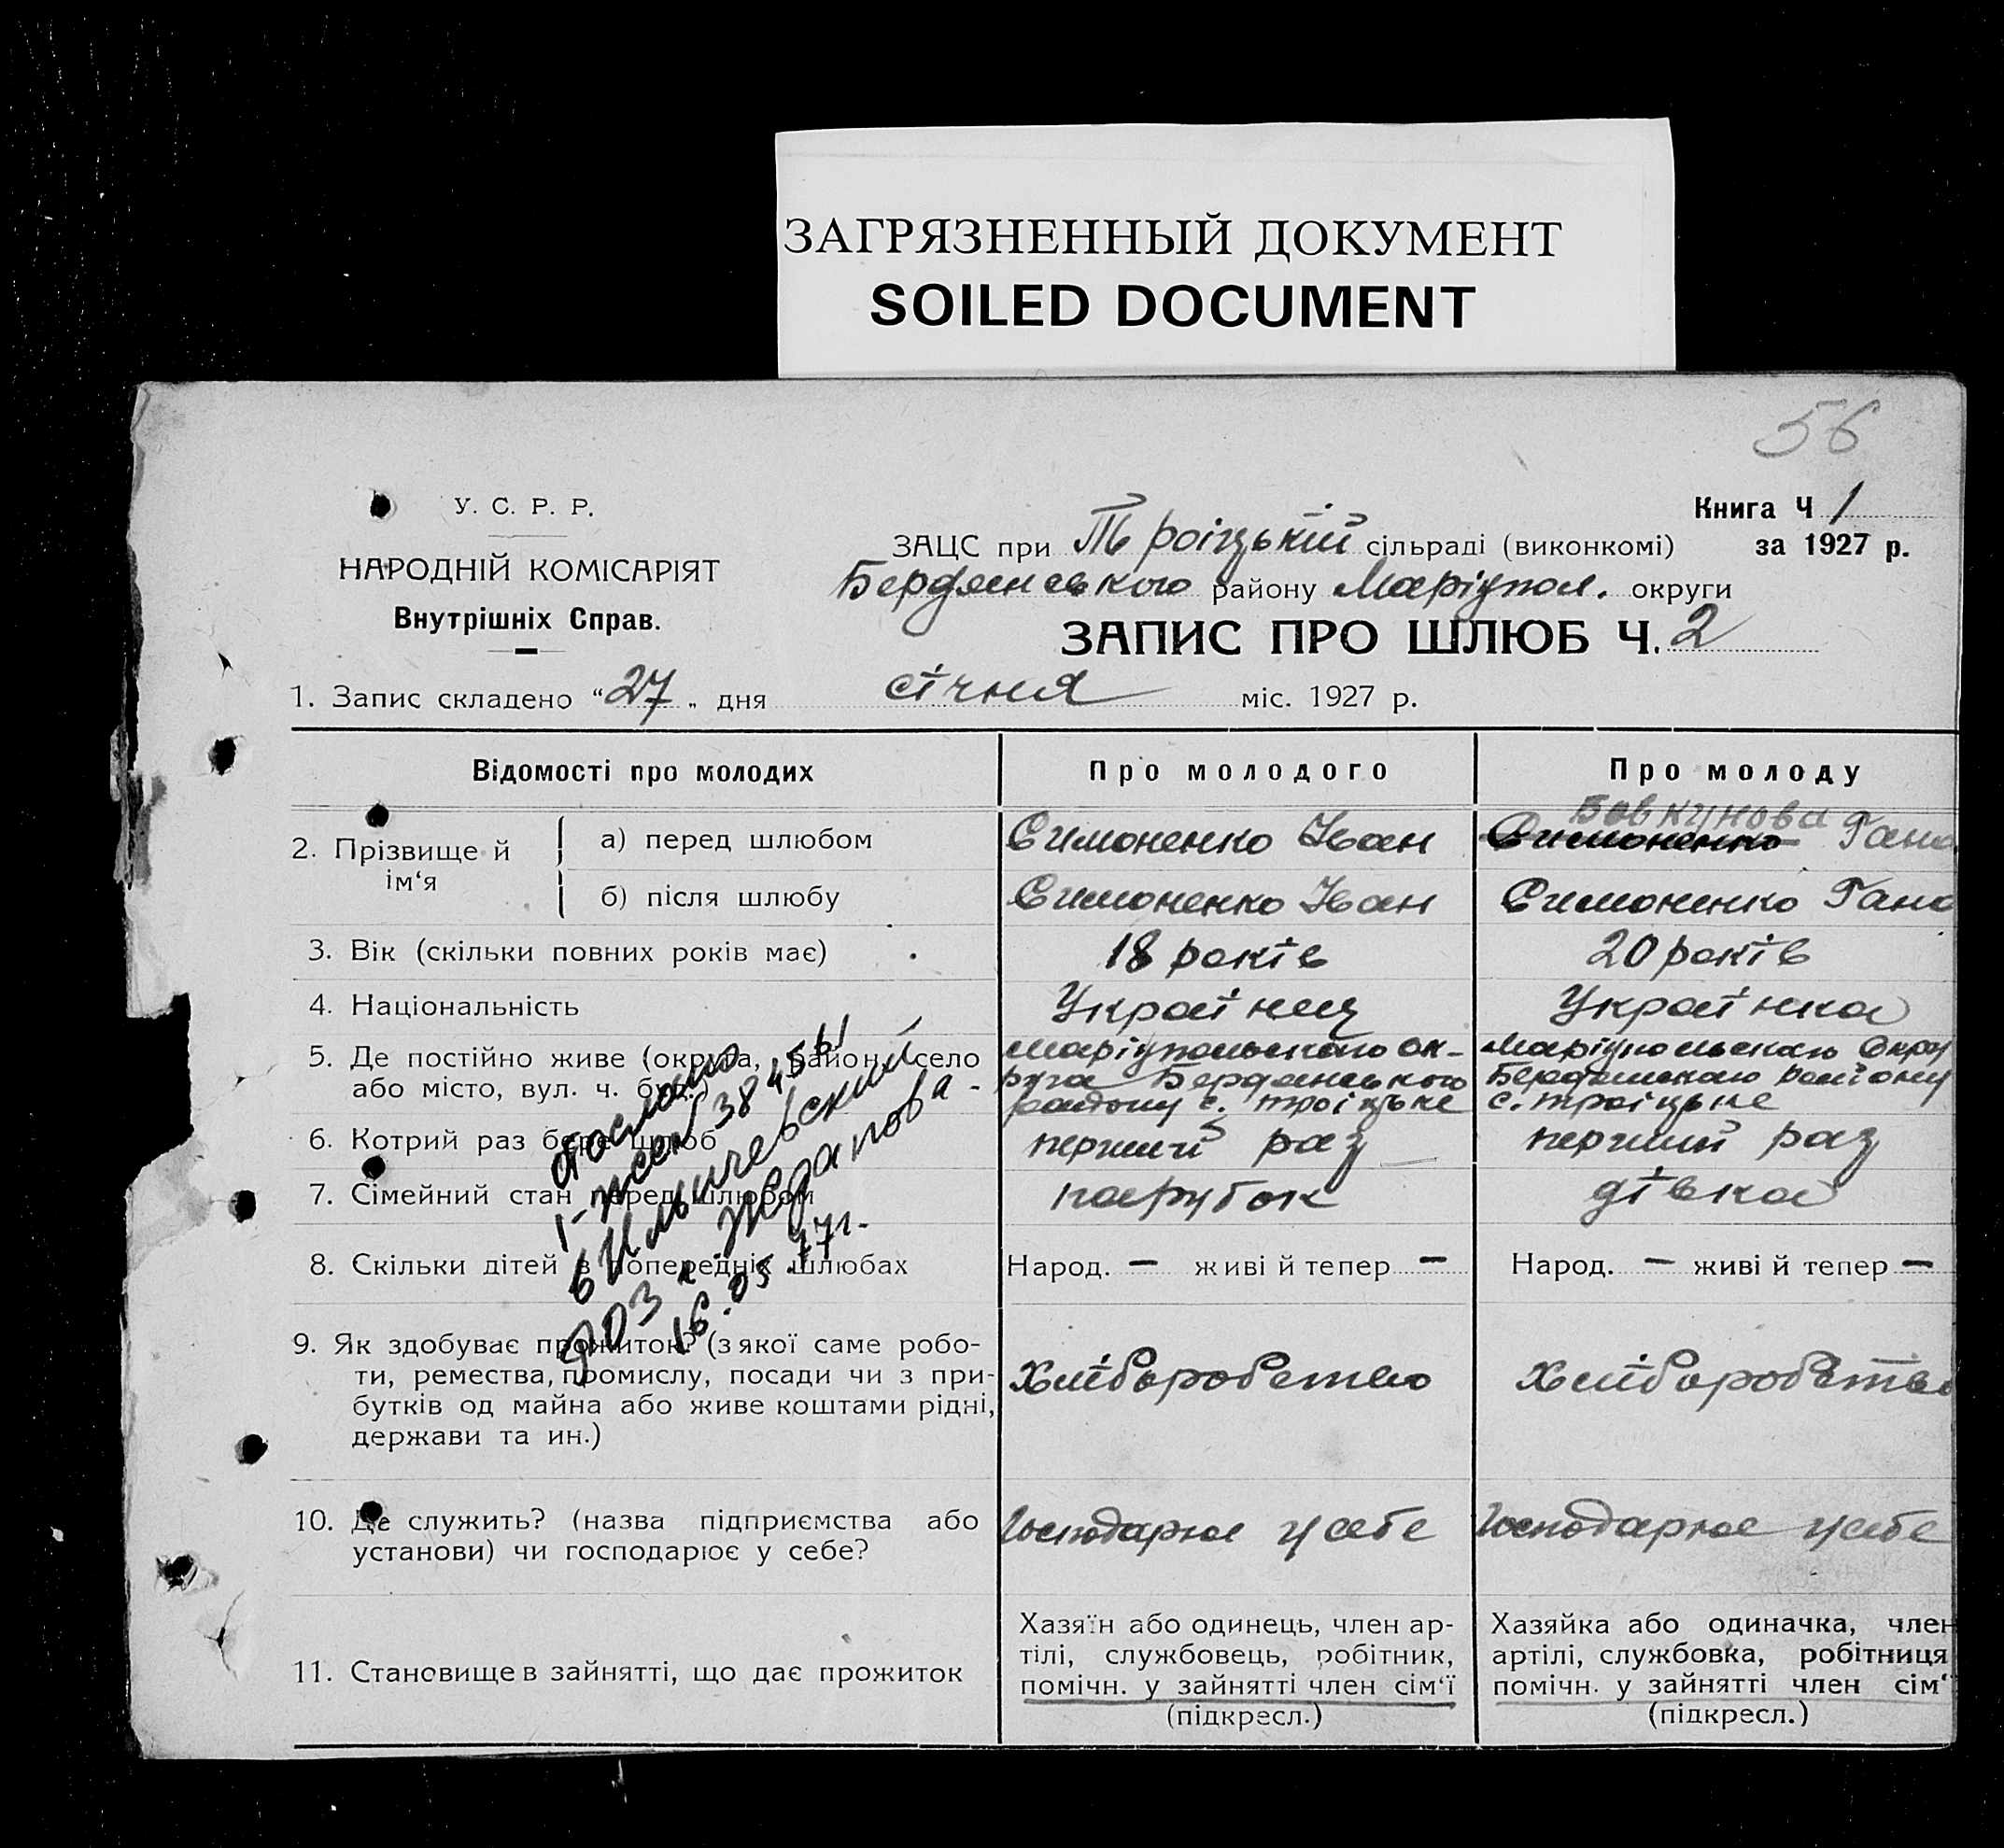 ЗАГРЯЗНЕННЫЙ ДОКУМЕНТ
SOILED DOCUMENT
56
У. С. Р. Р.
НАРОДНІЙ КОМІСАРІЯТ
Внутрішніх Справ.
Книга Ч 1
за 1927 р.
ЗАЦС при Троіцькій сільраді (виконкомі)
Бердянського району Маріупол. округи
ЗАПИС ПРО ШЛЮБ Ч. 2
1. Запис складено “27„ дня січня міс. 1927 р.
Відомості про молодих
Про молодого
Про молоду
2. Прізвище й ім‘я
а) перед шлюбом
Симоненко Іван
Бовкунова
Симоненко Гана
б) після шлюбу
Симоненко Іван
Симоненко Гана
3. Вік (скільки повних років має)
18 років
20 років
4. Національність
Украінец
Украінка
5. Де постійно живе (округа, район, село
або місто, вул. ч. буд.)
Маріупольского ок-
руга Бердянського
району с. Троіцьке
Маріупольскаго Окру
Бердянскаго районну
с. Троіцьке
6. Котрий раз бере шлюб
перший раз
перший раз
7. Сімейний стан перед шлюбом
парубок
дівка
8. Скільки дітей в попередніх шлюбах
Народ. — живі й тепер —
Народ. — живі й тепер —
9. Як здобуває прожиток? (з якої саме робо-
ти, ремества, промислу, посади чи з при-
бутків од майна або живе коштами рідні,
держави та ин.)
Хліборобство
Хліборобство
10. Де служить? (назва підприємства або
установи) чи господарює у себе?
Господарює у себе
Господарює у себе
11. Становище в зайнятті, що дає прожиток
Хазяїн або одинець, член ар-
тілі, службовець, робітник,
помічн. у зайнятті член сім‘ї
(підкресл.)
Хазяйка або одиначка, член
артілі, службовка, робітниця
помічн. у зайнятті член сім‘
(підкресл.)
1-жен 38 4561
в Ильичевский
Жданова
16.05.77г.